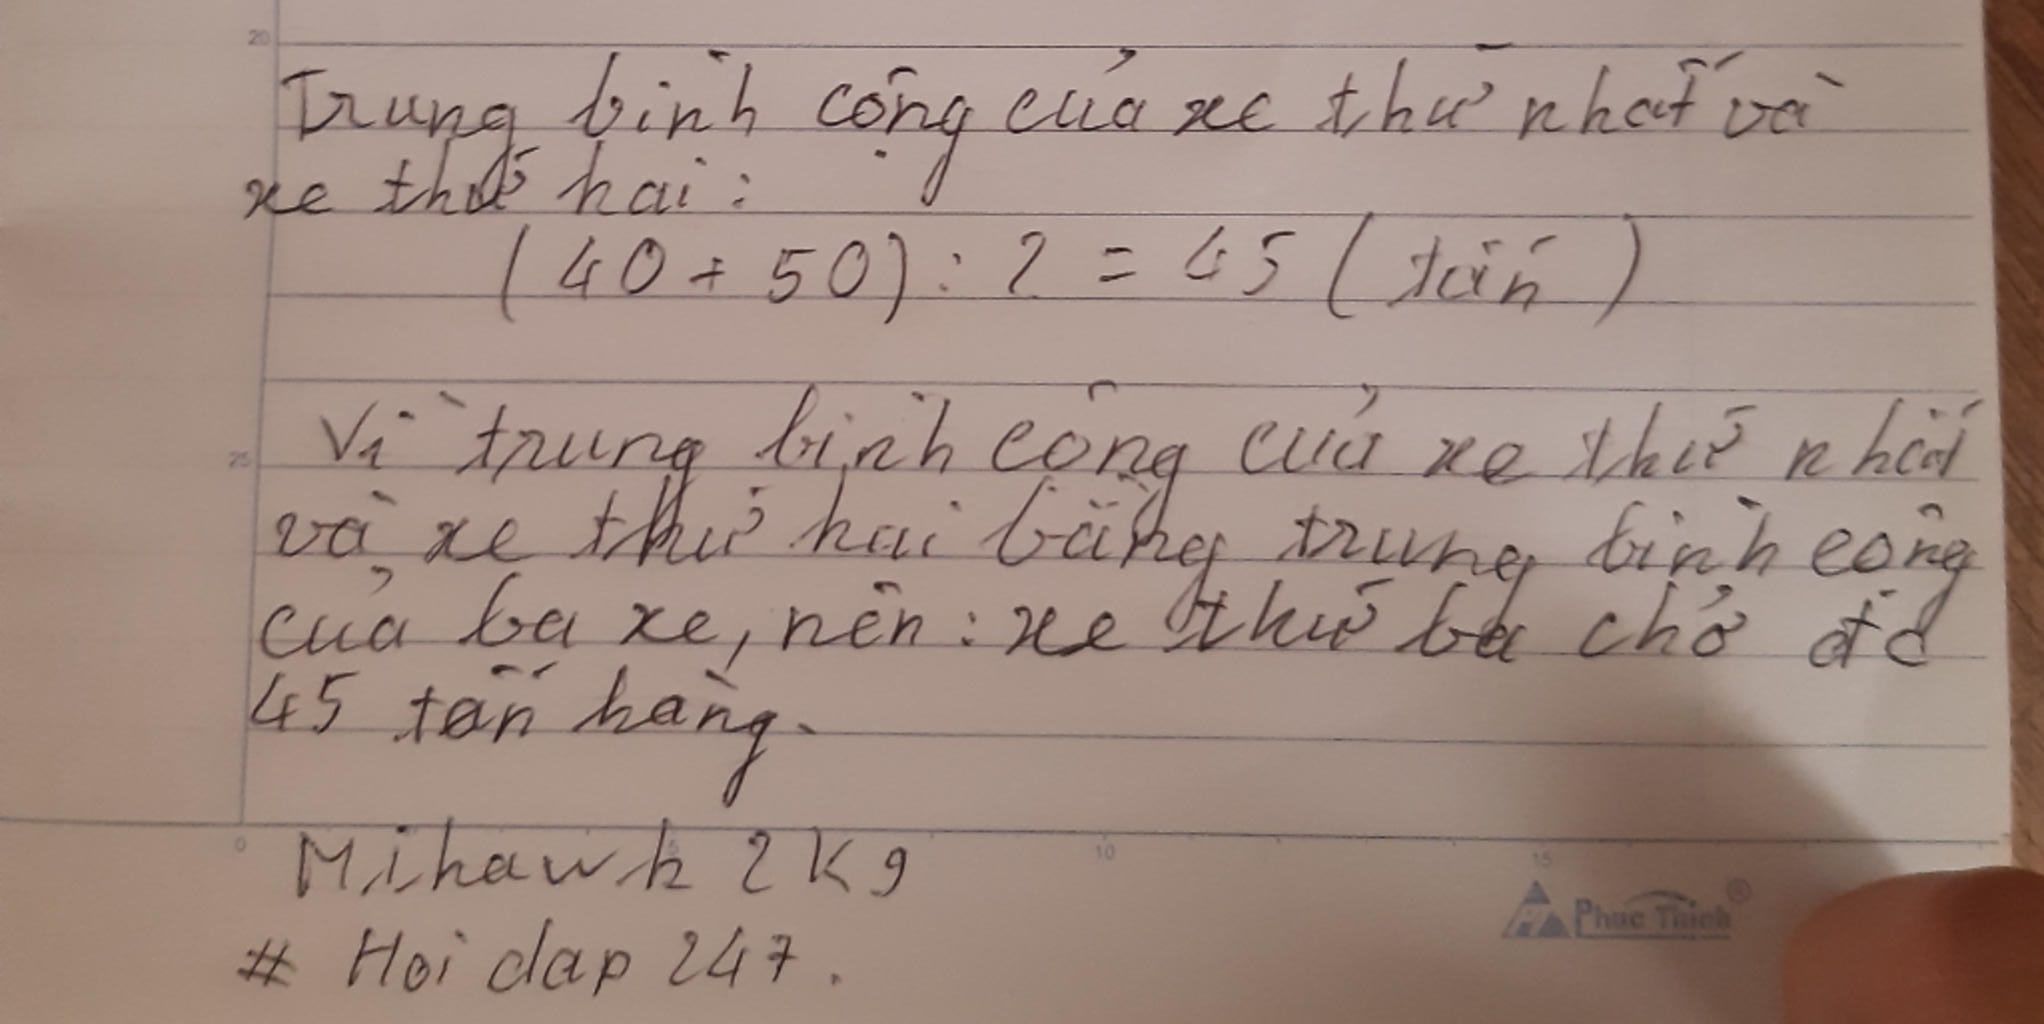 20
Trung bình cộng của xe thứ nhất và
xe thứ hai:
(40 + 50) : 2 = 45 (tấn)
Vì trung bình cộng của xe thứ nhất
25
và xe thứ hai bằng trung bình cộng
của ba xe, nên: xe thứ ba chở đc
45 tấn hàng.
0 5 10 15
Mihawk 2k9
Phuc Thinh ®
# Hoi dap 247.